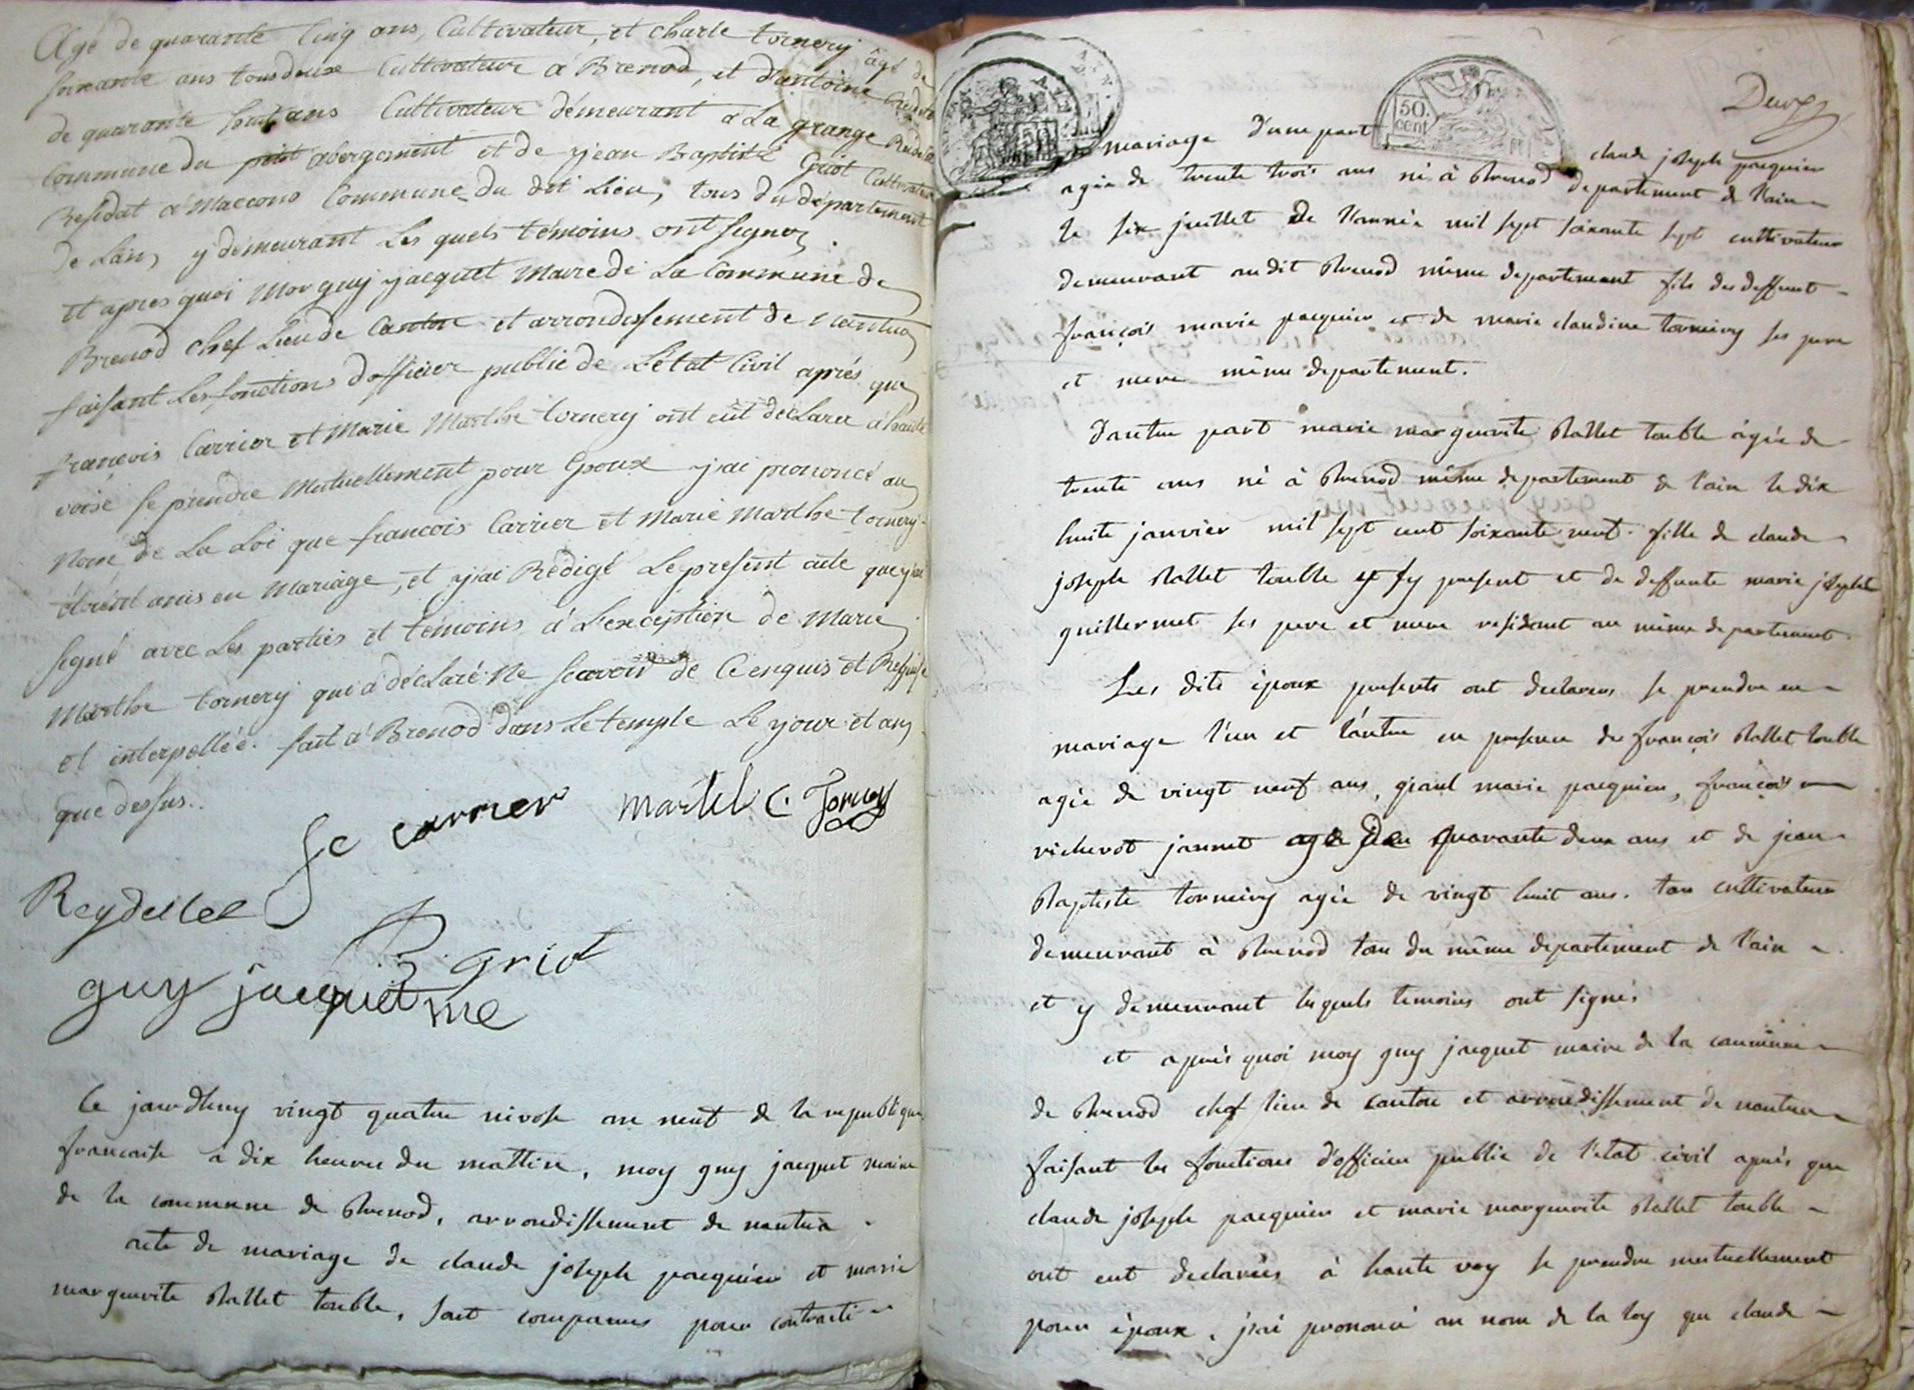 Agé de quarante Cinq ans, Cultivateur, et charle tornery âgé de
soixante ans tous deux Cultivateur a Brenod, et d'antoine
de quarante huit ans Cultivateur démeurant a La grange
Commune du petit abergement et de yjean Baptiste Griot Cultivateur
Résidat a Maconod Commune du dit Lieu, tous du département
de Lain, y démeurant Les quels témoins ont Signez.
Et apres quoi Moy guy yjacquet Maire de La Commune de
Brenod chef Lieu de Canton et arrondissement de nantua
faisant Les fonctions d'officier public de L'état Civil après que
francois Carrier et Marie Marthe tornery ont eût déclarer a haute
voix se prendre Mutuellement pour Epoux yjai prononcé au
Nom de La Loi que francois Carrier et Marie Marthe tornery
étoient unis en Mariage, et yjai Rédigé Le présent acte que yjai
signé avec Les parties et témoins a L'exception de Marie
Marthe tornery qui a déclaré Ne scavoir de Ce enquis et Requise
et interpellée. fait a Brenod dans Le temple Le yjour et an
que dessus.
fc carrier martel C. Tornery
Reydellet
JB griot
guy jacquet me
Ce jourdhuy vingt quatre nivose an neuf de la republique
francaise a dix heures du mattin, moy guy jacquet maire
de la commune de Brenod, arrondissement de nantua
acte de mariage de claude joseph pacquier et marie
marguerite Ballet touble, sont comparus pour contracter
Deux
mariage d'une part claude joseph pacquier
agée de trente trois ans né à Brenod departement de l'ain
le six juillet de l'année mil sept soixante sept cultivateur
demeurant audit Brenod même departement fils des deffunt
françois marie pacquier et de marie claudine tornery ses pere
et mere même departement.
d'autre part marie marguerite Ballet touble agée de
trente ans né à Brenod même departement de l'ain le dix
huite janvier mil sept cent soixante neuf. fille de claude
joseph Ballet touble icy present et de deffunte marie josephte
guillermet ses pere et mere residant au même departement.
Les dits époux presents ont declarés se prendre en
mariage l'un et l'autre en presence de françois Ballet touble
agée de vingt neuf ans, marie pacquier, françois
richerot jannet agé de quarante deux ans et de jean
Baptiste tornery agée de vingt huit ans. tous cultivateur
demeurant à Brenod tous du même departement de l'ain
et y demeurant lesquels temoins ont signés
et après quoi moy guy jacquet maire de la commune
de Brenod chef lieu de canton et arrondissement de nantua
faisant les fonctions d'officier public de l'etat civil après que
claude joseph pacquier et marie marguerite Ballet touble
ont eut declarés à haute voy se prendre mutuellement
pour époux, j'ai prononcé au nom de la loy que claude
50.
cent